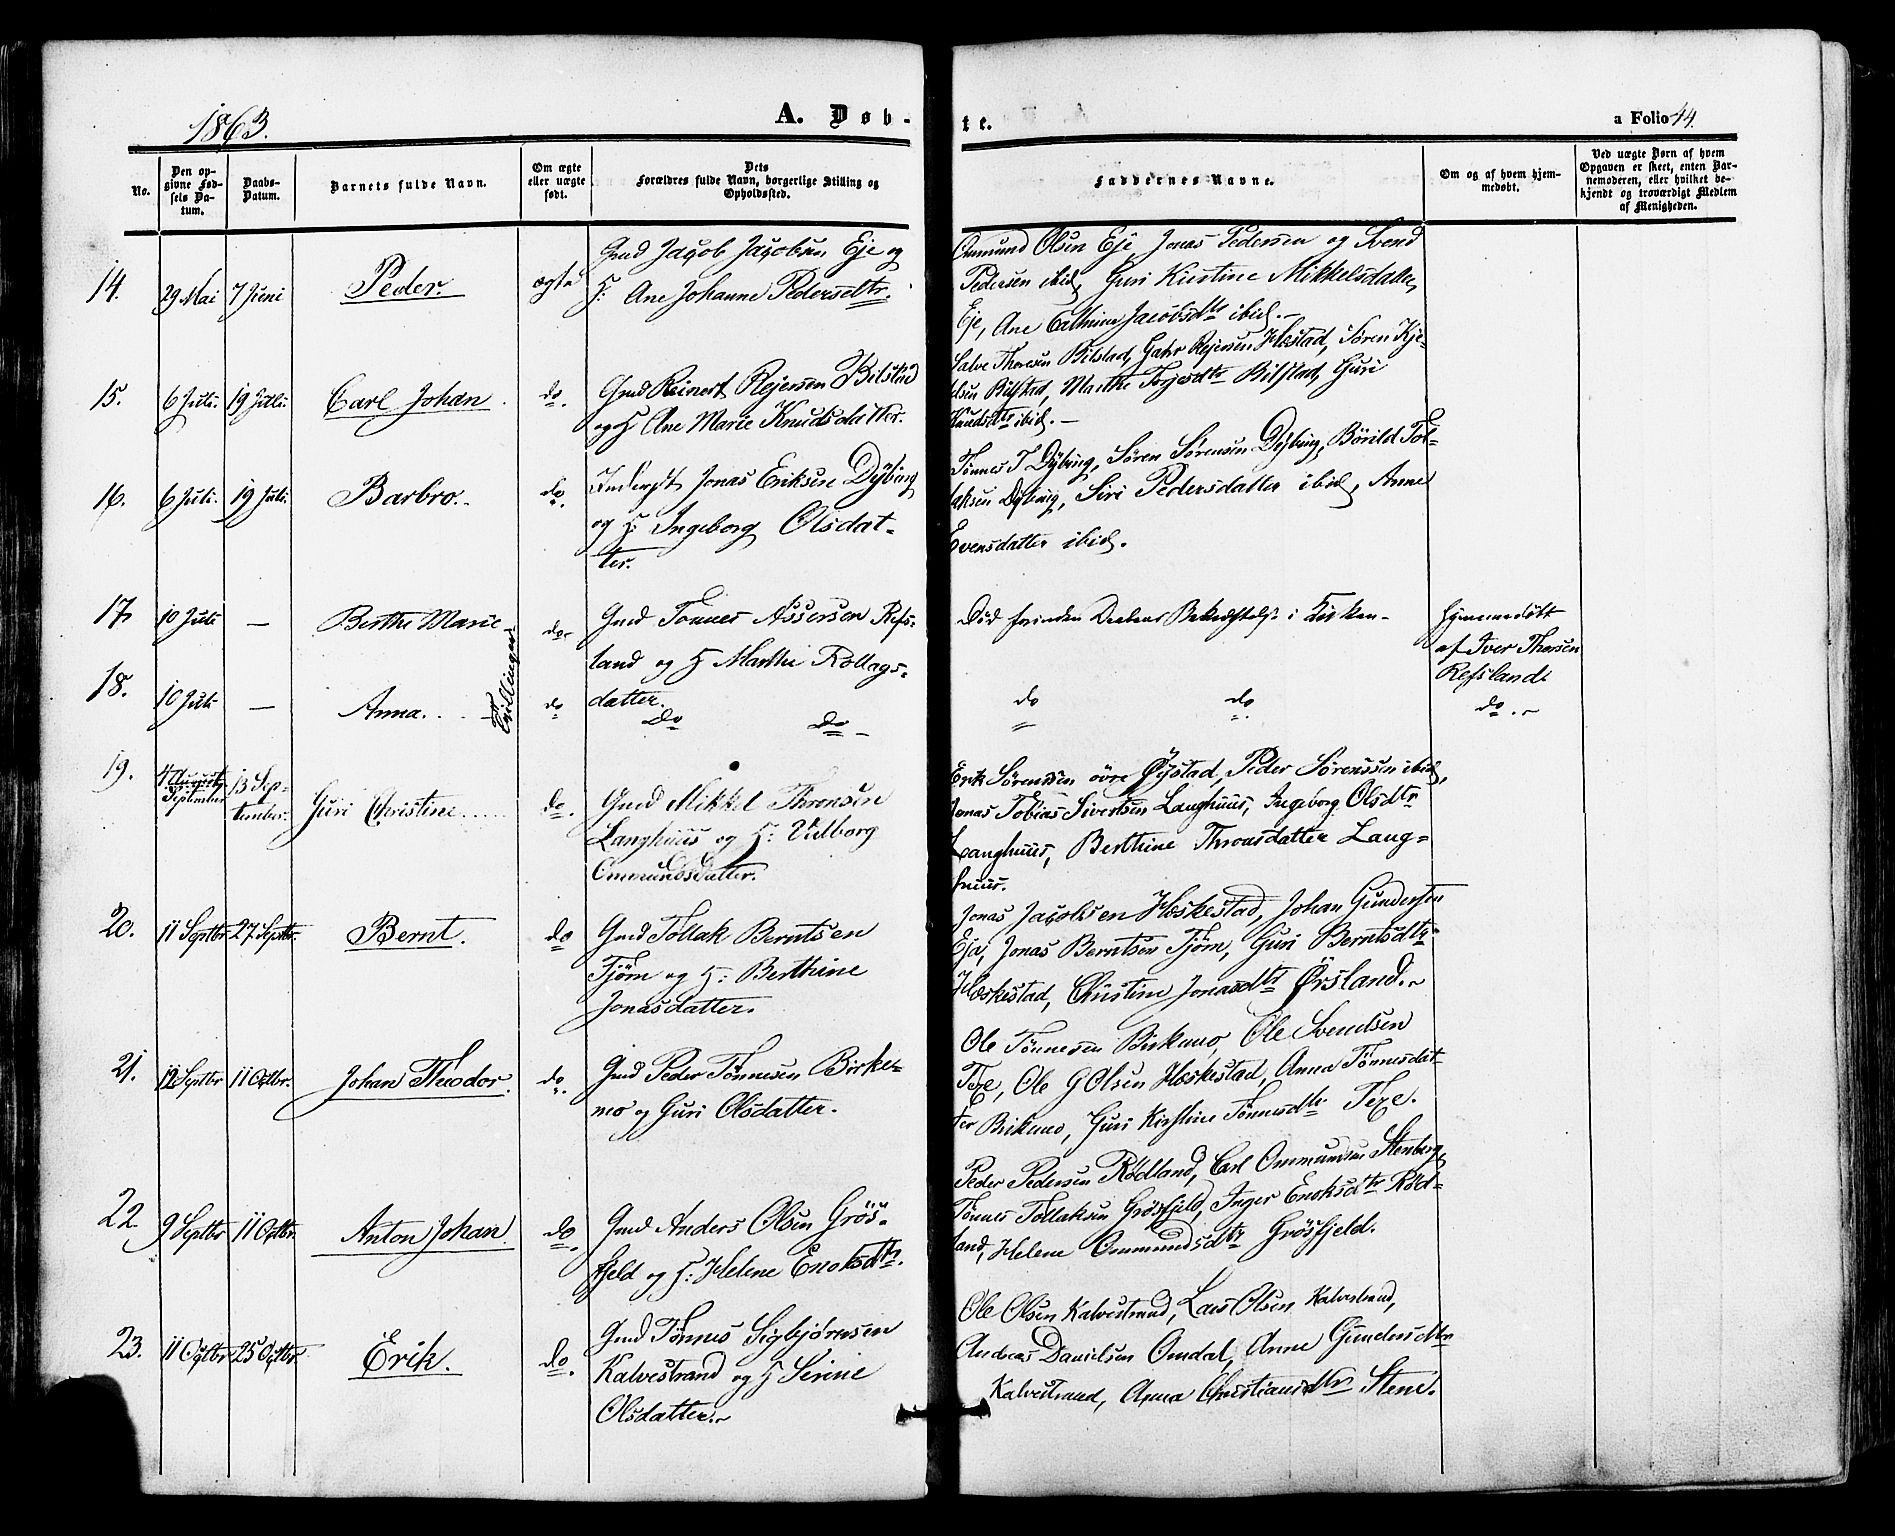 1863.
A. Døb-
te.
a Folio 44.
No.
Den op-
givne Fød-
sels Da-
tum.
Daabs-
Datum.
Barnets fulde Navn.
Om ægte
eller uægte
født.
Dets
Forældres fulde Navn, borgerlige Stilling og
Opholdssted.
Faddernes Navne.
Om og af hvem hjem-
medøbt.
Ved uægte Børn af hvem
Opgaven er skeet, enten Bar-
nemoderen, eller hvilket be-
kjendt og troværdigt Medlem
af Menigheden.
14. 29 Mai 7 Juni Peder. ægte
Gmd Jacob Jacobsen Eje og
H: Ane Johanne Pedersdtr.
Ommund Olsen Eje Jonas Pedersen og Svend
Pedersen ibid, Guri Kirstine Mikkelsdatter,
Eje, Ane Cathrine Jacobsdtr ibid.-
15. 6 Juli. 19 Juli. Carl Johan. do.
Gmd Reinert Rejersen Bilstad
og H Ane Marie Knudsdatter.
Salve Thoresen Bilstad, Gahr Rejersen Hæstad, Søren Kje-
elsen Bilstad, Marthe Terjesdtr Bilstad, Guri
Knudsdtr ibid.-
16. 6 Juli. 19 Juli Barbro.- do.
Inderst Jonas Eriksen Dybing
og H: Ingeborg Olsdat-
ter.
Tønnes T Dybing, Søren Sørensen Dybing, Børild Tol-
laksen Dybing, Siri Pedersdatter ibid, Anne
Evensdatter ibid.
17. 10 Juli — Berthe Marie Tvillinger do.
Gmd Tønnes Assersen Refs-
land og H Marthe Rollags-
datter.
Død forinden Daabens Bekræftelse i Kirken-
Hjemmedøbt
af Iver Thorsen
Refsland.
18. 10 Juli — Anna. do
Do Do -
do do.
do.-
19. 4 August September 13 Sep-
tember. Guri Christine..... do.
Gmd Mikkel Thronsen
Langhuus og H: Vilborg
Ommundsdatter.
Erik Sørensen øvre Øystad, Peder Sørenssen ibid,
Jonas Tobias Sivertsen Langhuus, Ingeborg Olsdtr
Langhuus, Berthine Thronsdatter Lang-
huus.
20. 11 Septbr 27 Septbr. Bernt. do
Gmd Tollak Berntsen
Tjørn og H: Berthine
Jonasdatter.
Jonas Jacobsen Hæskestad, Johan Gundersen
Eja, Jonas Berntsen Tjørn, Guri Berntsdtr
Hæskestad, Christine Jonasdtr Ørsland.-
21. 12 Septbr 11 Octbr. Johan Theodor. do.
Gmd Peder Tønnesen Birke-
mo og Guri Olsdatter.
Ole Tønnesen Birkemo, Ole Svendsen
Texe, Ole G Olsen Hæskestad, Anna Tønnesdat-
ter Birkemo, Guri Kirstine Tønnesdtr Texe.
22. 9 Septbr 11 Octbr. Anton Johan. do.
Gmd Anders Olsen Grøs-
fjeld og H: Helene Enoksdtr.
Peder Pedersen Rødland, Carl Ommundsen Stenberg,
Tønnes Tollaksen Grøsfjeld, Inger Enoksdtr Rød-
land, Helene Ommundsdtr Grøsfjeld.
23. 11 Octbr 25 Octbr. Erik. do.
Gmd Tønnes Sigbjørnsen
Kalvestrand og H Serine
Olsdatter.-
Ole Olsen Kalvestrand, Lars Olsen Kalvestrand,
Andreas Danielsen Omdal, Anne Gundersdtr
Kalvestrand, Anna Christiansdtr Stene.